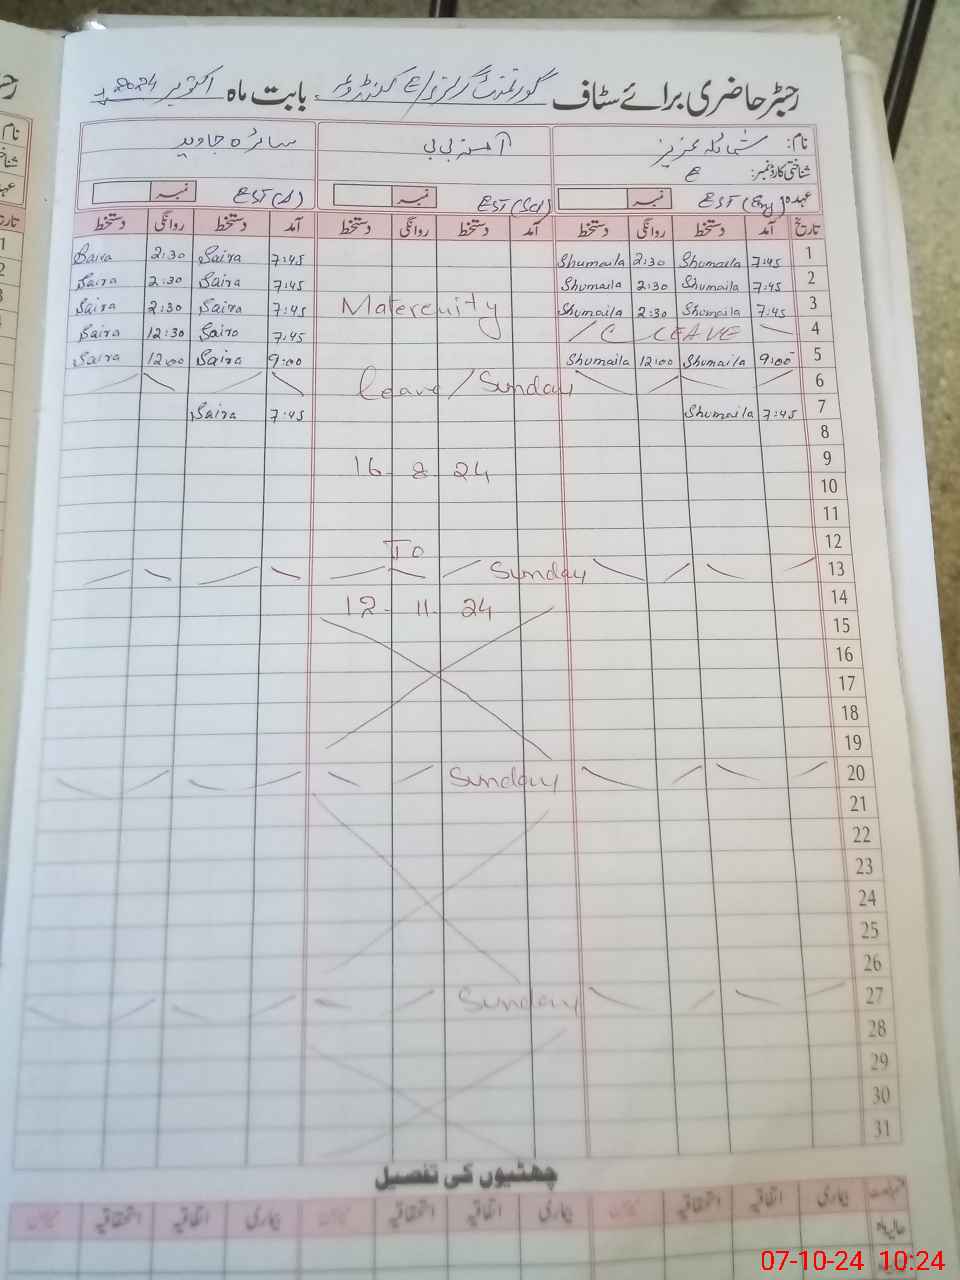 رجسٹر حاضری برائے سٹاف گورنمنٹ گرلز بابت ماہ اکتوبر 2024
نام: شمائلہ عزیز
آمنہ بی بی
سائرہ جاوید
شناختی کارڈ نمبر:
عہدہ EST (Eng) نمبر
EST (Sci) نمبر
EST (A) نمبر
تاریخ آمد دستخط روانگی دستخط آمد دستخط روانگی دستخط آمد دستخط روانگی دستخط
1 7:45 Shumaila 2:30 Shumaila 7:45 Saira 2:30 Saira
2 7:45 Shumaila 2:30 Shumaila 7:45 Saira 2:30 Saira
3 7:45 Shumaila 2:30 Shumaila Maternuity 7:45 Saira 2:30 Saira
4 C LEAVE 7:45 Saira 12:30 Saira
5 9:00 Shumaila 12:00 Shumaila 9:00 Saira 12:00 Saira
6 leave / Sunday
7 7:45 Shumaila 7:45 Saira
8
9 16 - 8 - 24
10
11
12 To
13 Sunday
14 12 - 11 - 24
15
16
17
18
19
20 Sunday
21
22
23
24
25
26
27 Sunday
28
29
30
31
چھٹیوں کی تفصیل
بیماری اتفاقیہ استحقاقیہ بیماری اتفاقیہ استحقاقیہ بیماری اتفاقیہ استحقاقیہ
07-10-24 10:24